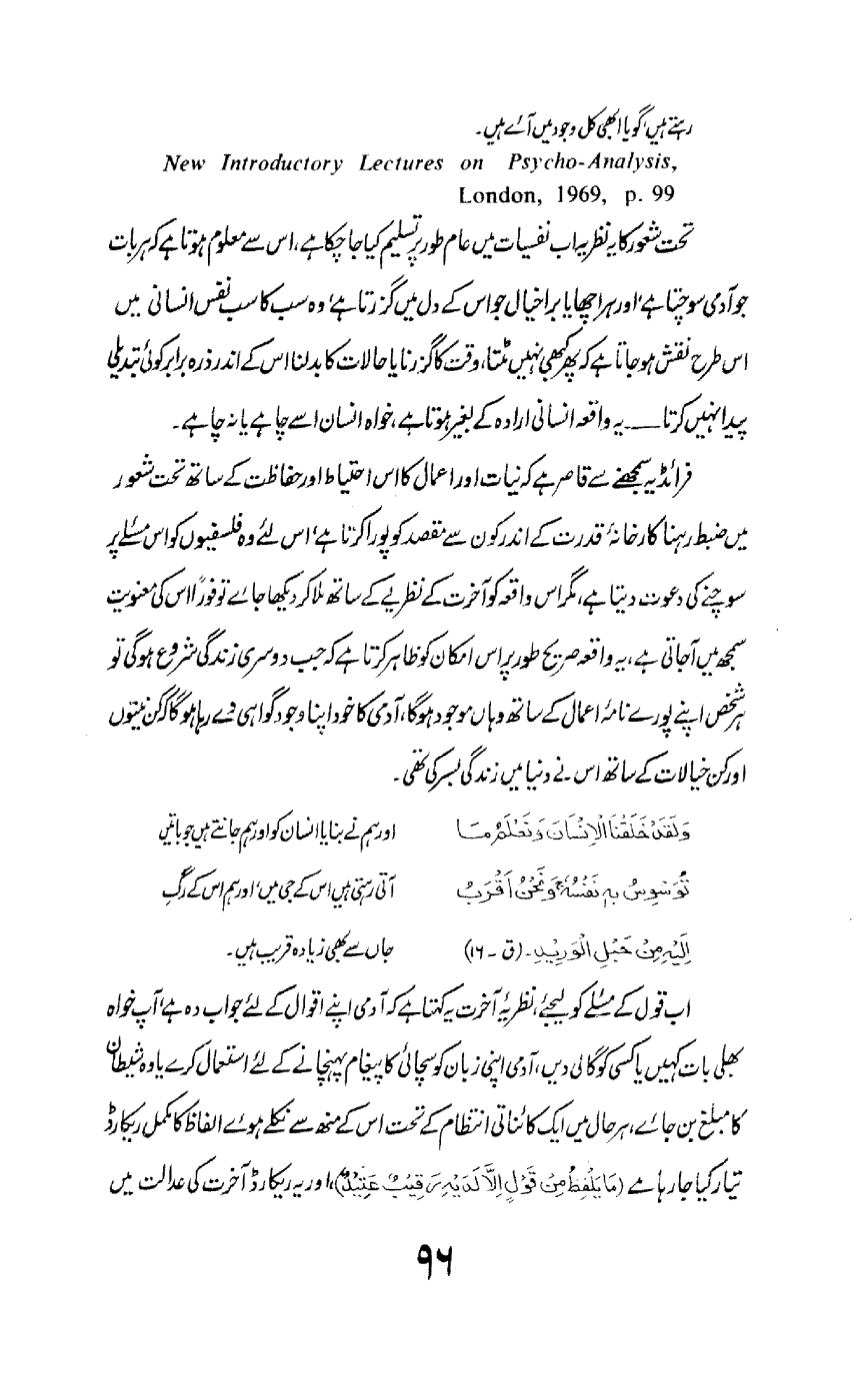 رہتے ہیں گویا ابھی کل وجود میں آئے ہیں۔
New Introductory Lectures on Psycho-Analysis,
London, 1969, p. 99
تحت شعور کا یہ نظریہ اب نفسیات میں عام طور پر تسلیم کیا جا چکا ہے، اس سے معلوم ہوتا ہے کہ ہر بات
جو آدمی سوچتا ہے، اور ہر اچھا یا برا خیال جو اس کے دل میں گزرتا ہے، وہ سب کا سب نفس انسانی میں
اس طرح نقش ہو جاتا ہے کہ پھر کبھی نہیں مٹتا، وقت کا گزرنا یا حالات کا بدلنا اس کے اندر ذرہ برابر کوئی تبدیلی
پیدا نہیں کرتا ـــــ یہ واقعہ انسانی ارادہ کے بغیر ہوتا ہے، خواہ انسان اسے چاہے یا نہ چاہے۔
فرائڈ یہ سمجھنے سے قاصر ہے کہ نیات اور اعمال کا اس احتیاط اور حفاظت کے ساتھ تحت شعور
میں ضبط رہنا کارخانۂ قدرت کے اندر کون سے مقصد کو پورا کرتا ہے، اس لئے وہ فلسفیوں کو اس مسئلے پر
سوچنے کی دعوت دیتا ہے، مگر اس واقعہ کو آخرت کے نظریے کے ساتھ ملا کر دیکھا جائے تو فوراً اس کی معنویت
سمجھ میں آجاتی ہے، یہ واقعہ صریح طور پر اس امکان کو ظاہر کرتا ہے کہ جب دوسری زندگی شروع ہوگی تو
ہر شخص اپنے پورے نامۂ اعمال کے ساتھ وہاں موجود ہوگا، آدمی کا خود اپنا وجود گواہی دے رہا ہوگا کہ کن نیتوں
اور کن خیالات کے ساتھ اس نے دنیا میں زندگی بسر کی تھی۔
وَلَقَدْ خَلَقْنَا الْاِنْسَانَ وَنَعْلَمُ مَا اور ہم نے بنایا انسان کو اور ہم جانتے ہیں جو باتیں
تُوَسْوِسُ بِهٖ نَفْسُهٗ وَنَحْنُ اَقْرَبُ آتی رہتی ہیں اس کے جی میں، اور ہم اس کے رگِ
اِلَيْهِ مِنْ حَبْلِ الْوَرِيْدِ۔ (ق - ۱۶) جاں سے بھی زیادہ قریب ہیں۔
اب قول کے مسئلے کو لیجئے، نظریۂ آخرت یہ کہتا ہے کہ آدمی اپنے اقوال کے لئے جواب دہ ہے، آپ خواہ
بھلی بات کہیں یا کسی کو گالی دیں، آدمی اپنی زبان کو سچائی کا پیغام پہنچانے کے لئے استعمال کرے یا وہ شیطان
کا مبلغ بن جائے، ہر حال میں ایک کائناتی انتظام کے تحت اس کے منھ سے نکلے ہوئے الفاظ کا مکمل ریکارڈ
تیار کیا جا رہا ہے (مَا يَلْفِظُ مِنْ قَوْلٍ اِلَّا لَدَيْهِ رَقِيْبٌ عَتِيْدٌ)، اور یہ ریکارڈ آخرت کی عدالت میں
۹۶